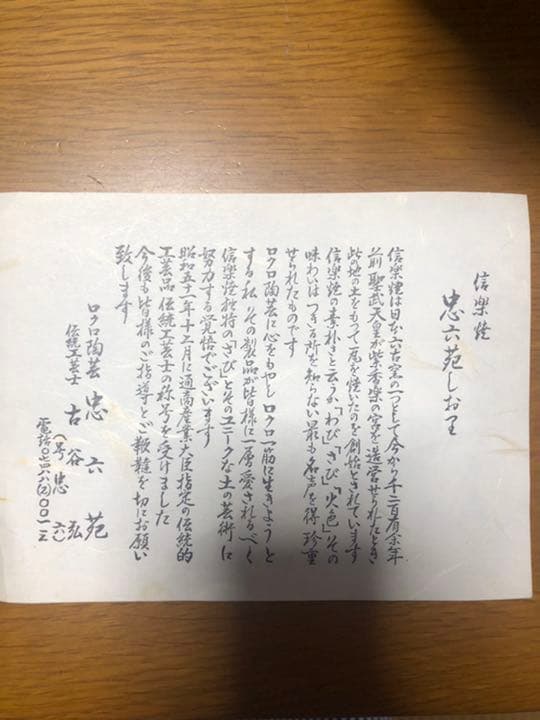 信楽焼
忠六苑しおり
信楽焼は日本六古窯の一つとして今から千二百有余年
前聖武天皇が紫香楽の宮を造営せられたとき
此の地の土をもって瓦を焼いたのを創始とされています
信楽焼の素朴さと云うか、「わび」「さび」「火色」その
味わいはつきる所を知らない最も名声を得珍重
せられたものです
ロクロ陶芸に心をもやしロクロ一筋に生きようと
する私、その製品が皆様に一層愛されるべく
信楽焼独特の「さび」とそのユニークな土の芸術に
努力する覚悟でございます
昭和五十一年十二月に通商産業大臣指定の伝統的
工芸品伝統工芸士の称号を受けました
今後も皆様のご指導とご鞭韃を切にお願い
致します
ロクロ陶芸 忠六苑
伝統工芸士 古谷弘
(号忠六)
電話〇七四八(八二)〇〇一